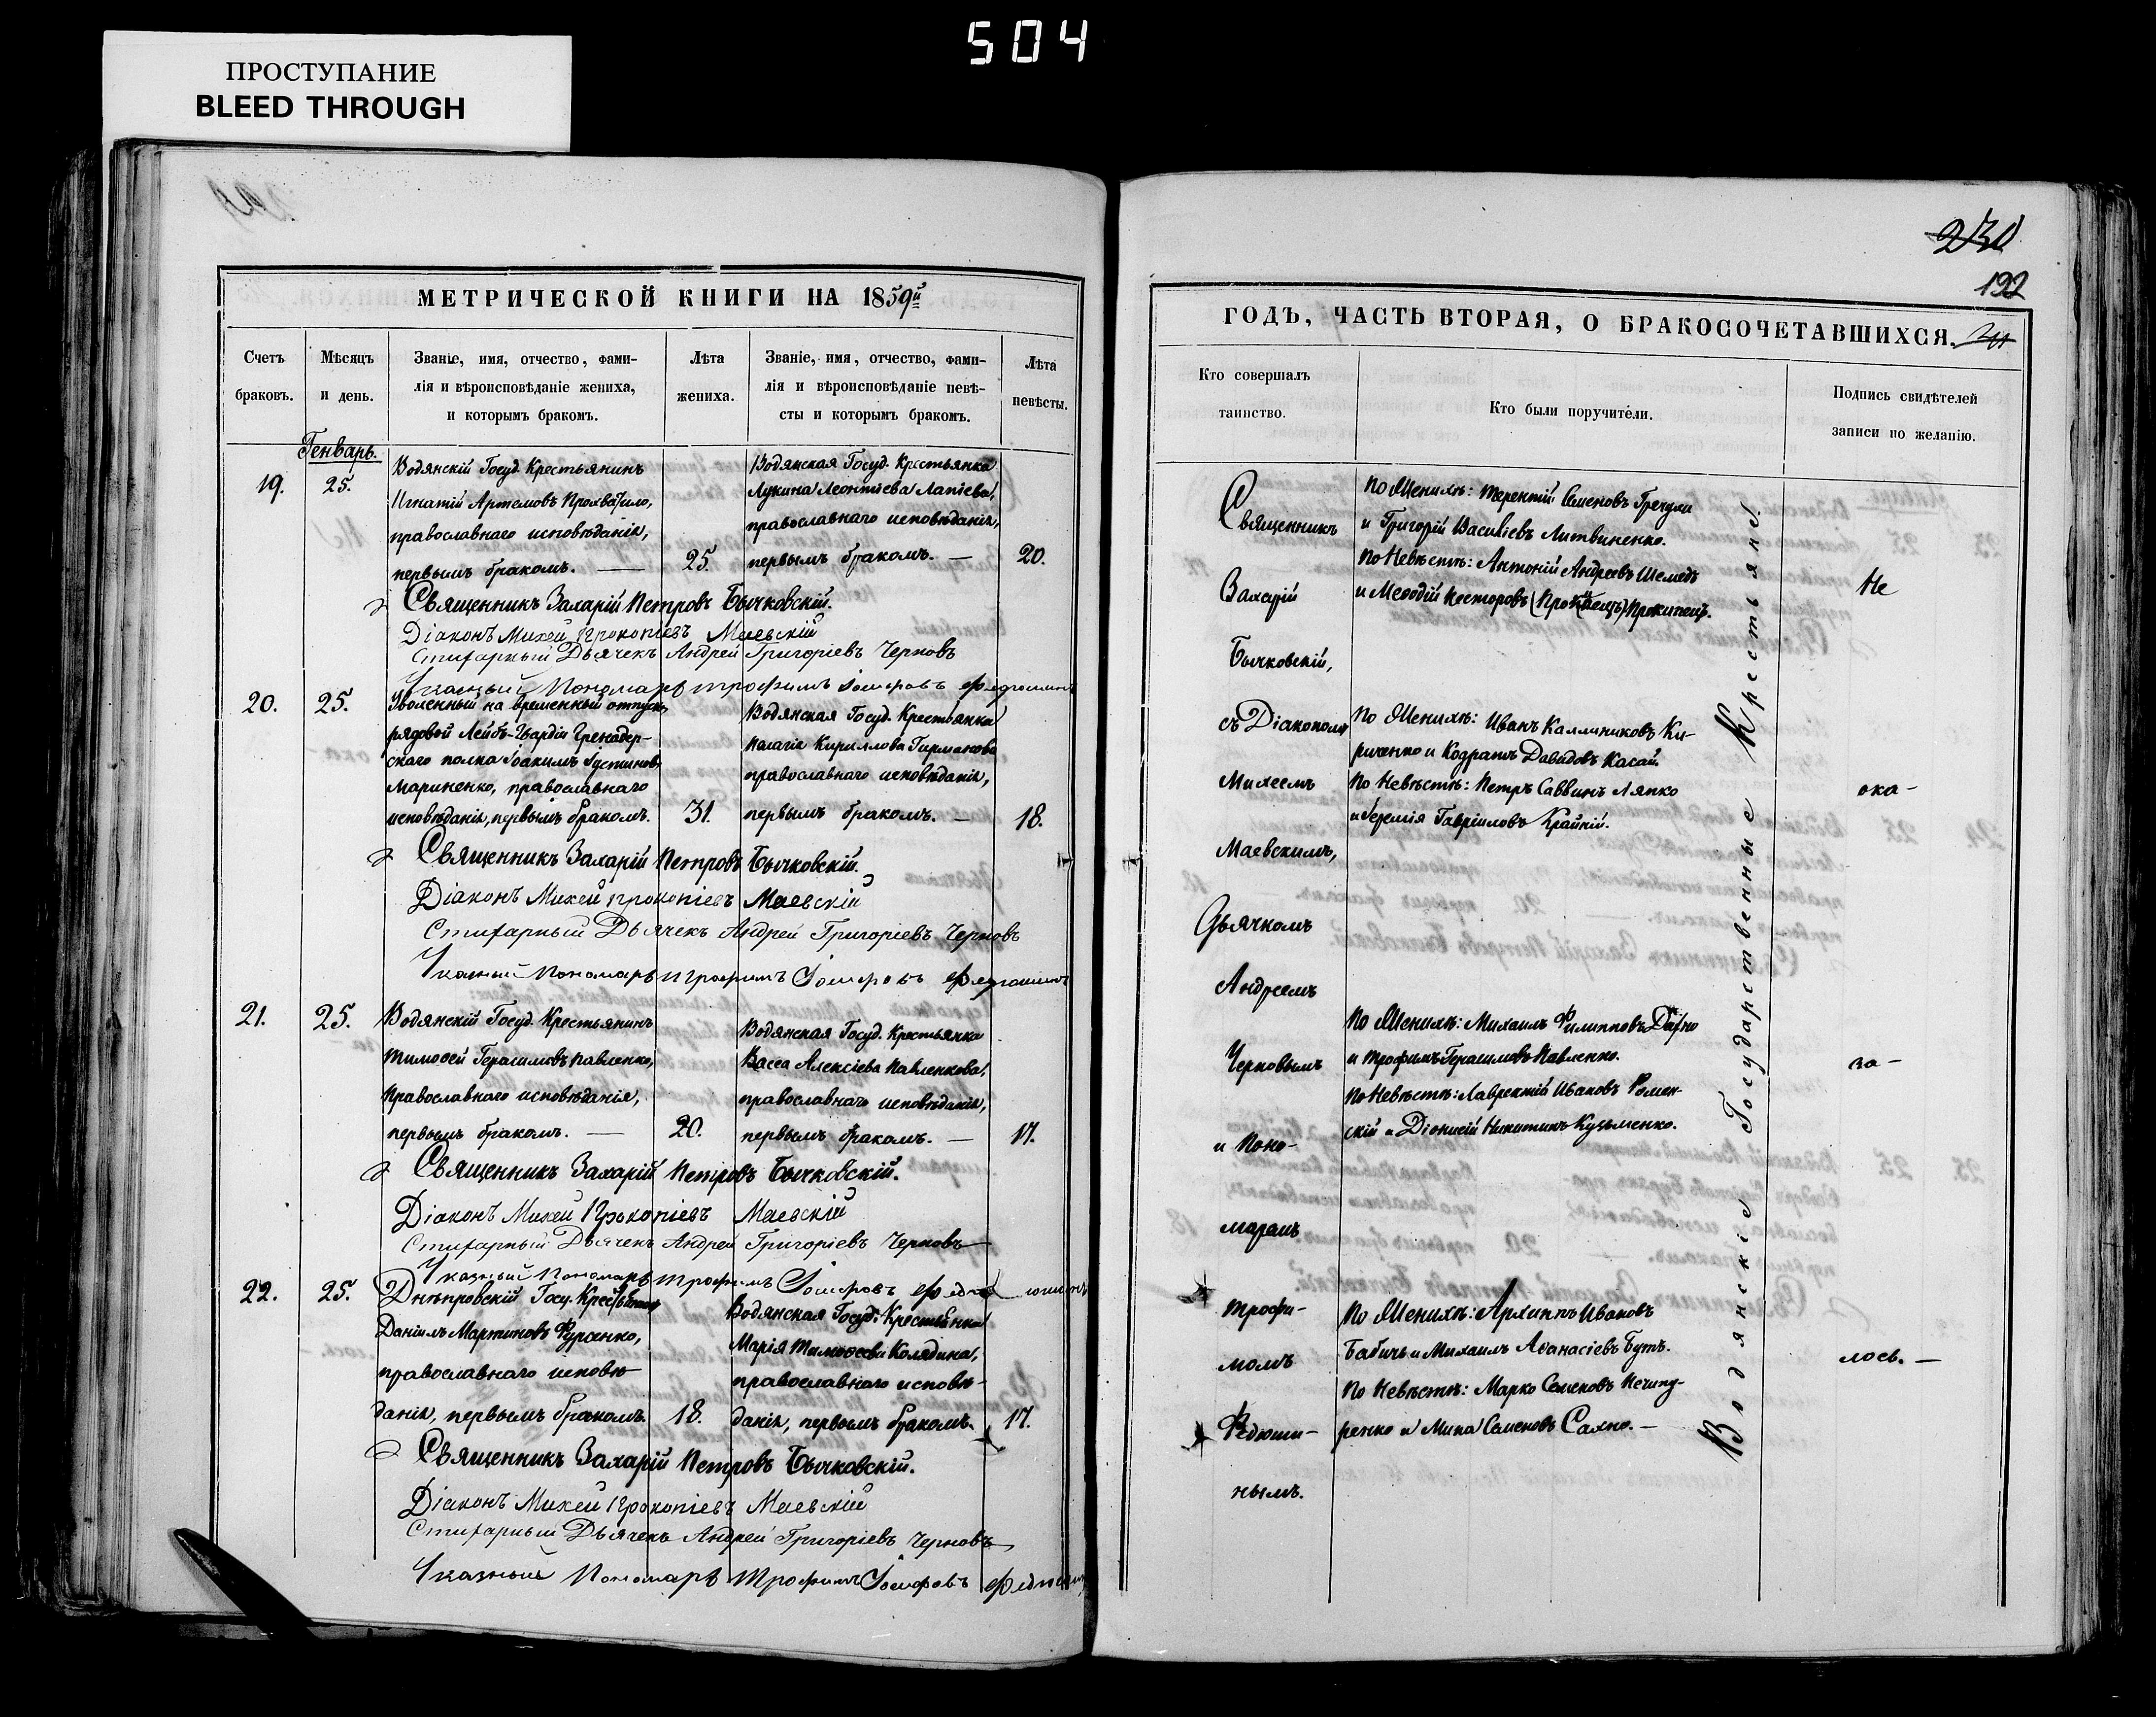 504
ПРОСТУПАНИЕ
BLEED THROUGH
МЕТРИЧЕСКОЙ КНИГИ НА 1859й
Счетъ браковъ.
Мѣсяцъ и день.
Званіе, имя, отчество, фами-
лія и вѣроисповѣданіе жениха,
и которымъ бракомъ.
Лѣта жениха.
Званіе, имя, отчество, фами-
лія и вѣроисповѣданіе невѣ-
сты и которымъ бракомъ.
Лѣта невѣсты.
Генварь.
19.
25.
Водянскій Госуд. Крестьянинъ
Игнатій Артемовъ Прохватило,
православнаго исповѣданія,
первымъ бракомъ. —
25.
Водянская Госуд. Крестьянка
Лукина Леонтіева Лапіева,
православнаго исповѣданія,
первымъ бракомъ. —
20.
Священникъ Захарій Петровъ Бычковскій.
Діаконъ Михей Прокопіевъ Маевскій
Стихарный Дьячекъ Андрей Григоріевъ Черновъ
Указный Пономарь Трофимъ Іосифовъ
20.
25.
Уволенный на временный отпускъ,
рядовой Лейбъ-Гвардіи Гренадер-
скаго полка Іоакимъ Іустиновъ
Мариненко, православнаго
исповѣданія, первымъ бракомъ.
31.
Водянская Госуд. Крестьянка
Пелагія Кириллова Гирманова
православнаго исповѣданія,
первымъ бракомъ. —
18.
Священникъ Захарій Петровъ Бычковскій.
Діаконъ Михей Прокопіевъ Маевскій
Стихарный Дьячекъ Андрей Григоріевъ Черновъ
Указный Пономарь Трофимъ Іосифовъ
21.
25.
Водянскій Госуд. Крестьянинъ
Тимофей Герасимовъ Павленко,
Православнаго исповѣданія,
первымъ бракомъ. —
20.
Водянская Госуд. Крестьянка
Васса Алексіева Павленкова,
православнаго исповѣданія,
первымъ бракомъ. —
17.
Священникъ Захарій Петровъ Бычковскій.
Діаконъ Михей Прокопіевъ Маевскій
Стихарный Дьячекъ Андрей Григоріевъ Черновъ
Указный Пономарь Трофимъ Іосифовъ
22.
25.
Днѣпровскій Госу. Крестьянинъ
Даніилъ Мартиновъ Фурсенко,
православнаго исповѣ
данія, первымъ бракомъ.
18.
Водянская Госуд. Крестьянка
Марія Тимофеева Колядина,
православнаго исповѣ-
данія, первымъ бракомъ.
17.
Священникъ Захарій Петровъ Бычковскій.
Діаконъ Михей Прокопіевъ Маевскій
Стихарный Дьячекъ Андрей Григоріевъ Черновъ
Указный Пономарь Трофимъ Іосифовъ
230
192
ГОДЪ, ЧАСТЬ ВТОРАЯ, О БРАКОСОЧЕТАВШИХСЯ.
Кто совершалъ таинство.
Кто были поручители.
Подпись свидѣтелей
записи по желанію.
Священникъ
Захарій
Бычковскій,
съ Діакономъ
Михеемъ
Маевскимъ,
Дьячкомъ
Андреемъ
Черновымъ
и Поно-
маремъ
Трофи-
момъ
Федюши-
нымъ.
По Женихѣ: Терентій Семеновъ
и Григорій Василіевъ Литвиненко.
По Невѣстѣ: Антоній Андреевъ
и Меѳодій Несторовъ Прокипецъ.
По Женихѣ: Иванъ Каллиниковъ Ки-
риченко и Кодратъ Давидовъ Касай
По Невѣстѣ: Петръ Саввинъ Ляпко
и Іеремія Гавріиловъ Крайній.
По Женихѣ: Михаилъ Филипповъ
и Трофимъ Герасимовъ Павленко.
По Невѣстѣ: Лаврентій Ивановъ Ромен-
скій и Діонисій Никитинъ Кузьменко.
По Женихѣ: Архиппъ Ивановъ
Бабичъ и Михаилъ Аѳанасіевъ Бутъ.
По Невѣстѣ: Марко Семеновъ Нечипу-
ренко и Мина Семеновъ Сахно. —
Водянскіе Государственные Крестьяне.
Не
ока-
за-
лось. —